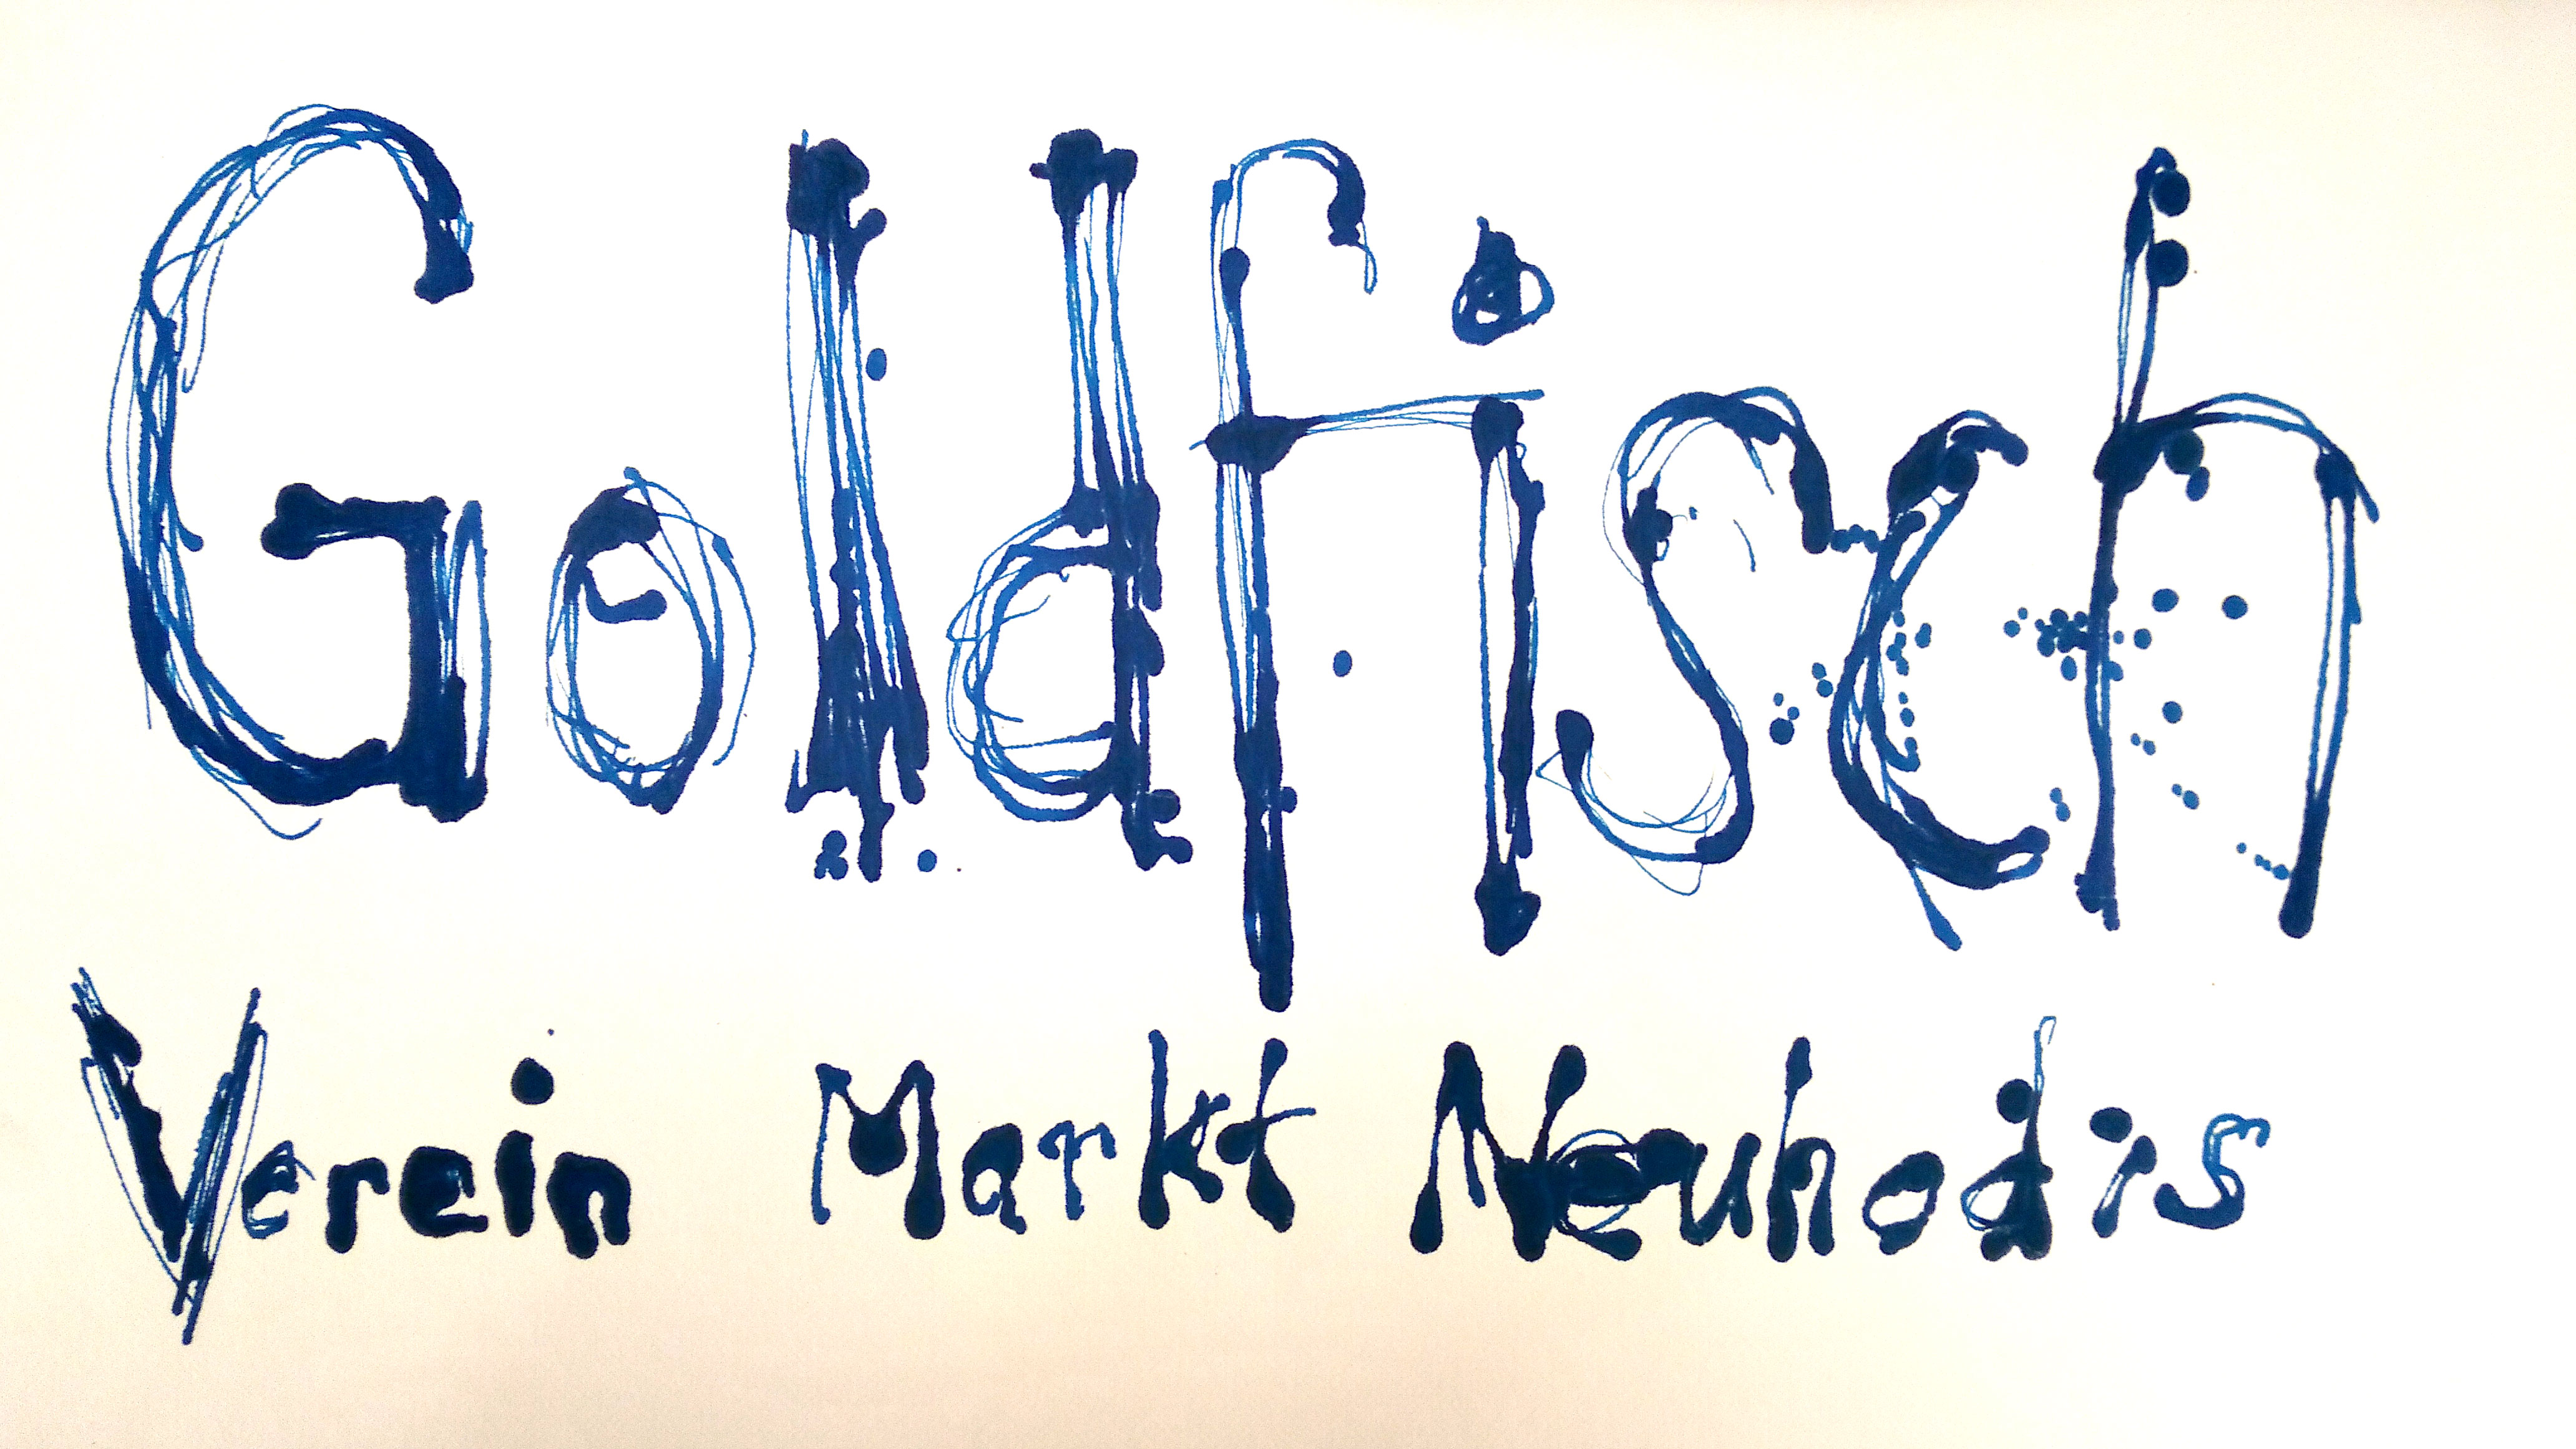 Goldfisch
Verein Markt Neuhodis